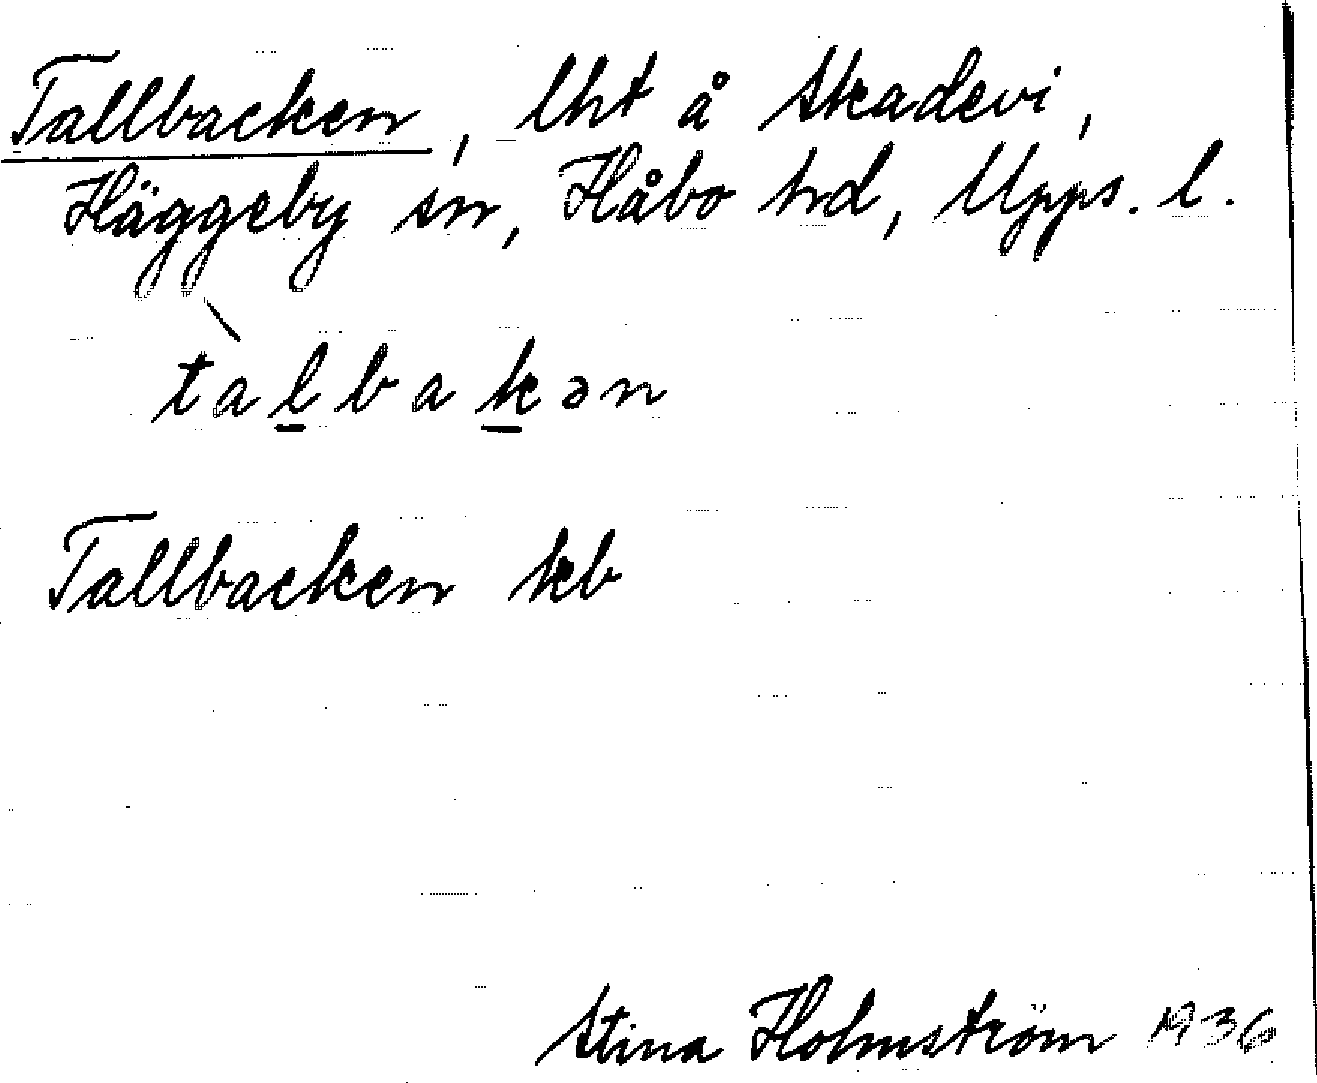 Tallbacken, lht å Skadevi,
Häggeby sn, Håbo hd, Upps. l.
tàl̲bak̲ən
Tallbacken kb
Stina Holmström 1936